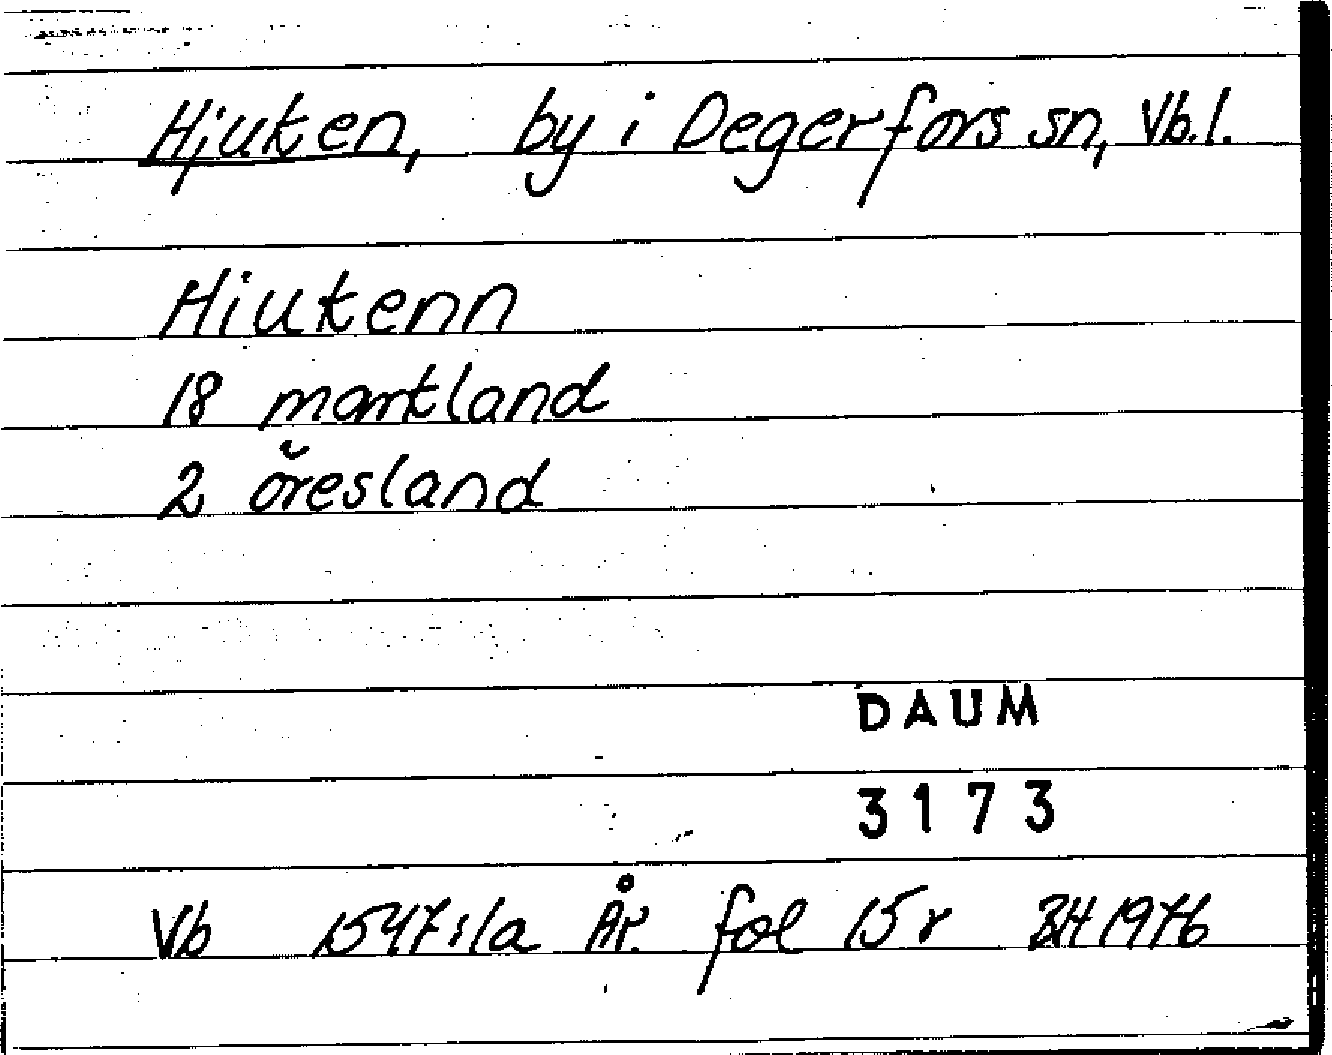 Hjuken, by i Degerfors sn, Vb.l.
Hiukenn
18 markland
2 öresland
DAUM
3173
Vb 1547:1a År. fol 15r BH 1976